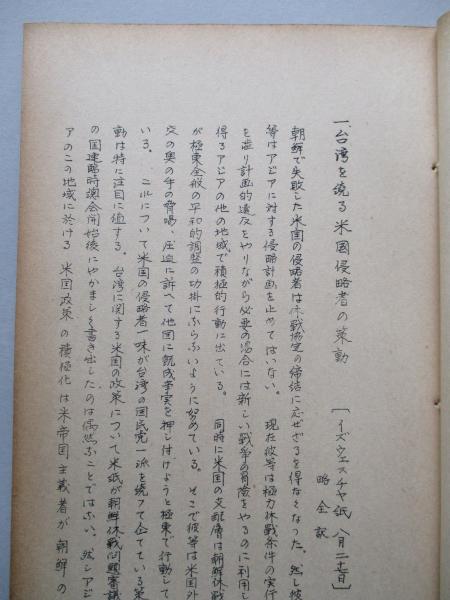 一、台湾を繞る米国侵略者の策動
[イズヴェスチヤ紙 八月二十日]
略全訳
朝鮮で失敗した米国の侵略者は休戦協定の締結に応ぜざるを得なくなった。然し彼
等はアジアに対する侵略計画を止めてはいない。 現在彼等は極力休戦条件の実行
を渋り計画的違反をやりながら必要の場合には新しい戦争の冒険をやるのに利用し
得るアジアの他の地域で積極的行動に出ている。 同時に米国の支配層は朝鮮休戦
が極東全般の平和的調整の功掛にならぶいように努めている。そこで彼等は米国外
交の奥の手の脅喝、圧迫に訴へて他国に既成事実を押し付けようと極東で行動して
いる。 これについて米国の侵略者一味が台湾の国民党一派を繞って企てている策
動は特に注目に値する。台湾に関する米国の政策について米紙が朝鮮休戦問題審議
の国連臨時総会開始後にやかましく書き出したのは偶然ぶことではぶい。然しアジ
アのこの地域に於ける 米国政策の積極化は米帝国主義者が朝鮮の